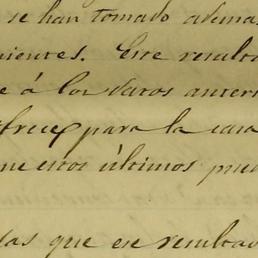 se han tomado ademas
nientes. Este resulta
e á los datos anteri
frece para la cara
ne estos últimos pue
das que ese resultad